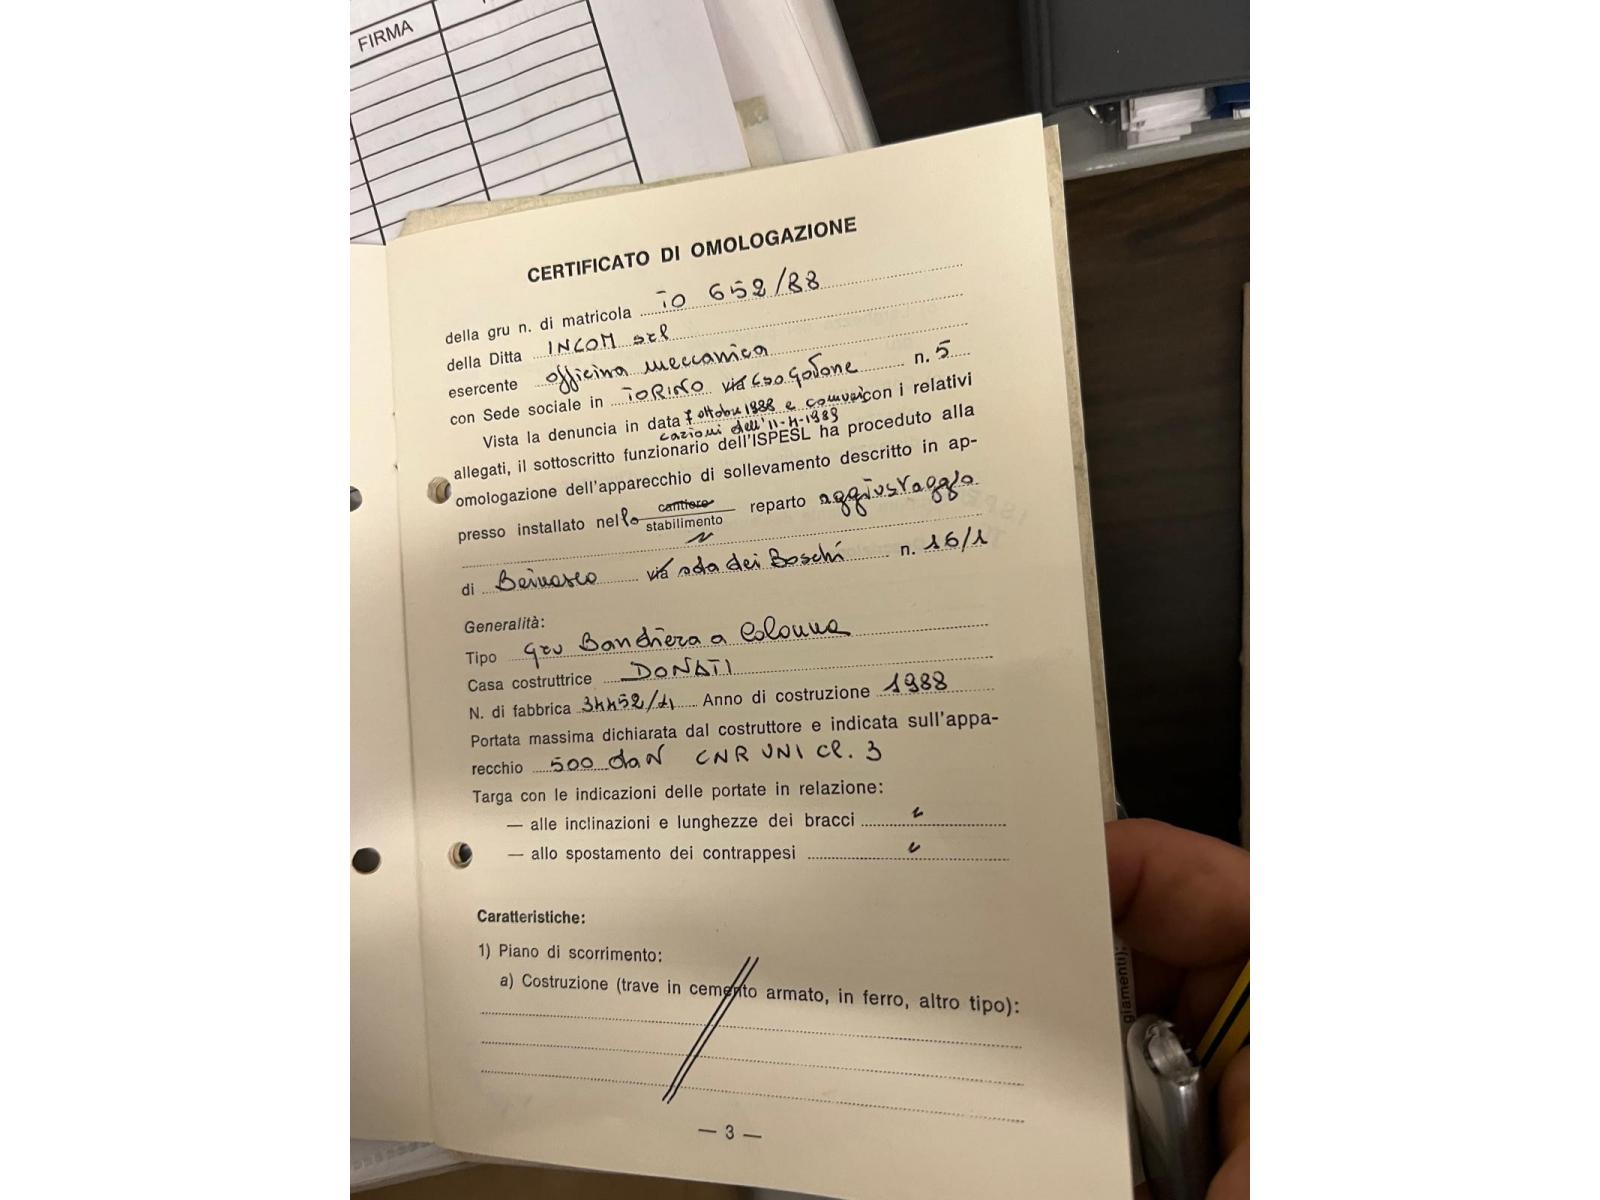 FIRMA
CERTIFICATO DI OMOLOGAZIONE
della gru n. di matricola TO 652/88
della Ditta INCOM srl
esercente officina meccanica
con Sede sociale in TORINO via cso Godone n. 5
Vista la denuncia in data 7 ottobre 1988 e comuni con i relativi
cazioni dell'11-4-1989
allegati, il sottoscritto funzionario dell'ISPESL ha proceduto alla
omologazione dell'apparecchio di sollevamento descritto in ap-
presso installato nello cantiere reparto aggiustaggio
stabilimento
di Beinasco via sda dei Boschi n. 16/1
Generalità:
Tipo gru Bandiera a Colonna
Casa costruttrice DONATI
N. di fabbrica 34452/41 Anno di costruzione 1988
Portata massima dichiarata dal costruttore e indicata sull'appa-
recchio 500 daN CNR UNI Cl. 3
Targa con le indicazioni delle portate in relazione:
— alle inclinazioni e lunghezze dei bracci
— allo spostamento dei contrappesi
Caratteristiche:
1) Piano di scorrimento:
a) Costruzione (trave in cemento armato, in ferro, altro tipo):
— 3 —
giamenti):